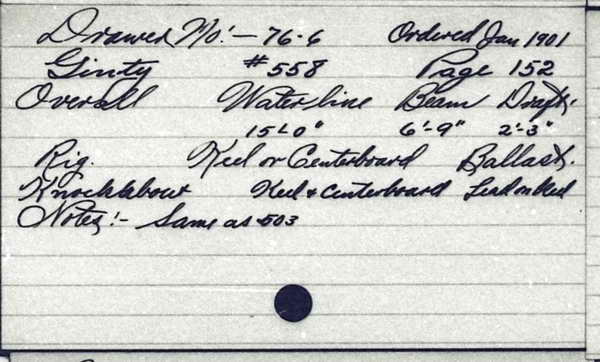 Drawer No:- 76-6 Ordered Jan 1901
Ginty #558 Page 152
Overall Waterline Beam Draft.
15'-0" 6'-9" 2'-3"
Rig. Keel or Centerboard Ballast.
Knockabout Keel & Centerboard Lead on Keel
Notes:- Same as 503